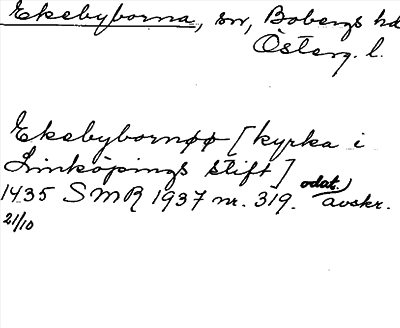 Ekebyborna, sn, Bobergs hd
Österg. l.
Ekebybornøø [kyrka i
Linköpings stift]
odat.)
1435 SMR 1937 nr. 319. avskr.
21/10